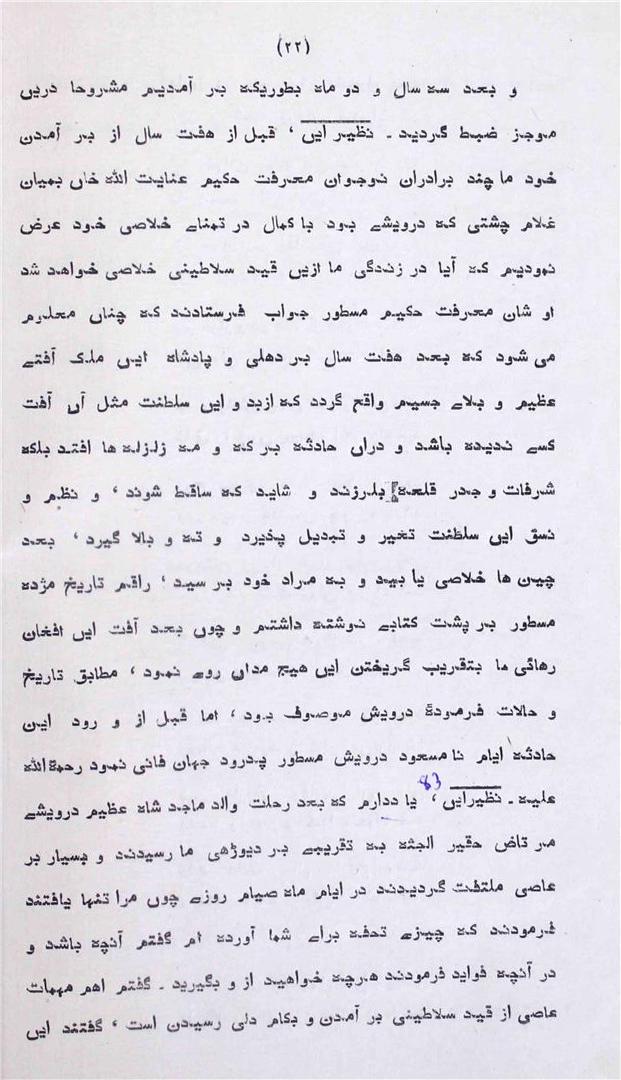 (۲۲)
و بعد سه سال و دو ماه بطوریکه بر آمدیم مشروحا دریں
موجز ضبط گردید ـ نظیر ایں ، قبل از هفت سال از بر آمدن
خود ما چند برادران نوجوان معرفت حکیم عنایت الله خاں بمیان
غلام چشتی که درویشے بود با کمال در تمنائے خلاصی خود عرض
نمودیم که آیا در زندگی ما ازیں قید سلاطینی خلاصی خواهد شد
او شان معرفت حکیم مسطور جواب فرستادند که چناں معلوم
می شود که بعد هفت سال بر دهلی و پادشاه ایں ملک آفتے
عظیم و بلائے جسیم واقع گردد که ازبد و ایں سلطنت مثل آں آفت
کسے ندیده باشد و دراں حادثه بر که و مه زلزله ها افتد بلکه
شرفات و جدر قلعه بلرزند و شاید که ساقط شوند ، و نظم و
نسق ایں سلطنت تغیر و تبدیل پذیرد و ته و بالا گیرد ، بعد
چیں ها خلاصی یا بید و به مراد خود بر سید ، راقم تاریخ مژده
مسطور بر پشت کتابے نوشته داشتم و چوں بعد آفت ایں افغان
رهائی ما بتقریب گریختن ایں هیچ مداں روے نمود ، مطابق تاریخ
و حالات فرمودۀ درویش موصوف بود ، اما قبل از و رود این
حادثه ایام نا مسعود درویش مسطور پدرود جهان فانی نمود رحمة الله
علیه ـ نظیرایں ، 83 یا ددارم که بعد رحلت والد ماجد شاه عظیم درویشے
مر تاض حقیر الجثه به تقریبے بر دیوڑهی ما رسیدند و بسیار بر
عاصی ملتفت گردیدند در ایام ماه صیام روزے چوں مرا تنها یافتند
فرمودند که چیزے تحفه براے شما آورده ام گفتم آنچه باشد و
در آنچه فواید فرمودند هرچه خواهید از و بگیرید ـ گفتم اهم مهمات
عاصی از قید سلاطینی بر آمدن و بکام دلی رسیدن است ، گفتند ایں